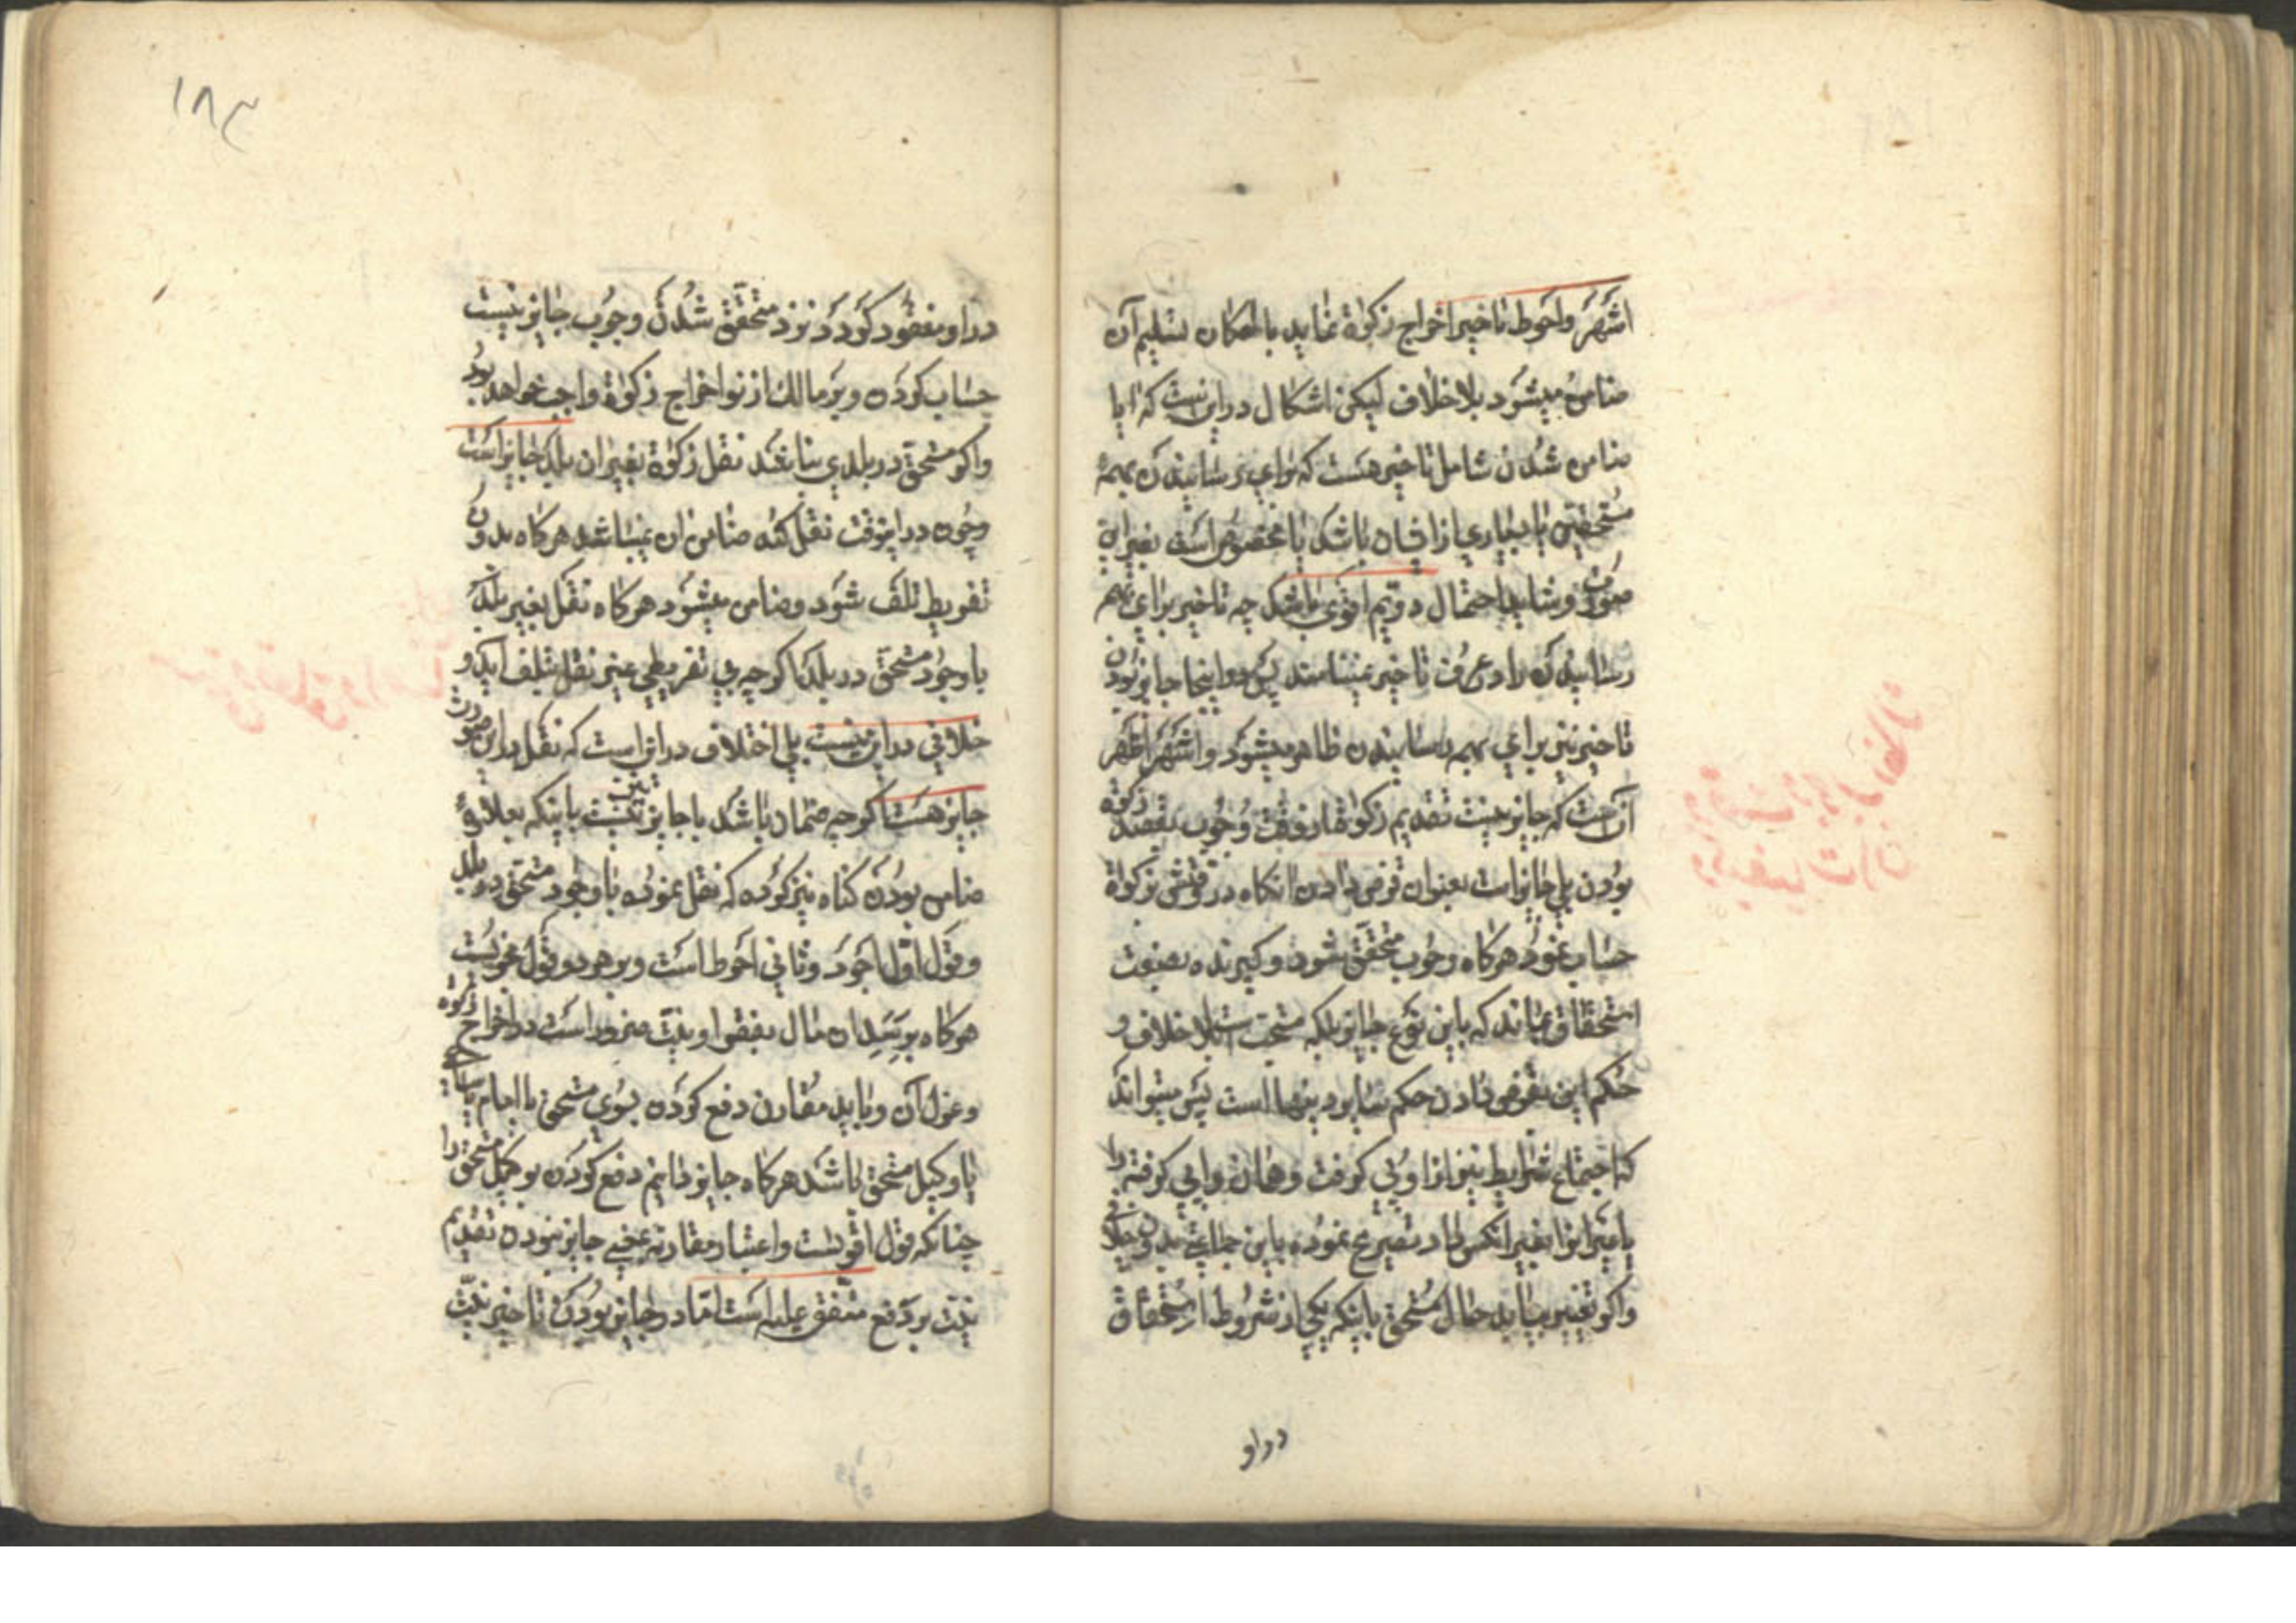 اشهر واحوط تاخیر اخراج زکوة نماید با امکان تسلیم آن
ضامن میشود بلا خلاف لیکن اشکال در اینست که ایا
ضامن شدن شامل تاخیر هست که برای رسانیدن بهمهٔ
مستحقین یا بسیاری از ایشان باشد یا مخصوص است بغیر این
صورت و شاید احتمال دویم اقوی باشد چه تاخیر برای بهم
رسانیدن را در عرف تاخیر نمینامند پس در اینجا جایز بودن
تاخیر نیز برای بهم رسانیدن ظاهر میشود و اشهر اظهر
آنست که جایز نیست تقدیم زکوة از وقت وجوب بقصد زکوة
بودن بلی جایز است بعنوان قرض دادن انکاه در قرضش زکوة
حساب نمود هرکاه وجوب متحقق شود و کیرنده بصفت
استحقاق بماند که باین نوع جایز بلکه مستحب است بلا خلاف و
حکم این بقرض دادن حکم سایر دینها است پس میتواند
که اجتماع شرایط نیز از او پس کرفت و همان وا پس کرفته را
یا غیر انرا بغیر انکس داد تصریح نموده باین جماعتی بدون خلافی
واکر تغییر بیابد حال مستحق باینکه یکی از شروط استحقاق
در او
۱۸۳
در او مفقود کردد نزد متحقق شدن وجوب جایز نیست
حساب کردن و بر مالک از نو اخراج زکوة واجب خواهد بود
واکر مستحق در بلدی نباشد نقل زکوة بغیر ان بلد جایز است
وچون در اینوقت نقل کند ضامن ان نمیباشد هرکاه بدون
تفریط تلف شود وضامن میشود هرکاه نقل بغیر بلد
با وجود مستحق در بلد اکر چه بی تفریطی غیر نقل تلف آید و
خلافی در این نیست بلی اختلاف در این است که نقل در این صورت
جایز هست اکر چه ضمان باشد یا جایز نیز نیست باینکه بعلاوهٔ
ضامن بودن کناه نیز کرده که نقل نموده با وجود مستحق در بلد
و قول اول اجود و ثانی احوط است و بر هر دو قول مجزیست
هرکاه برسد ان مال بفقرا و نیت ضرور است در اخراج زکوة
و عزل آن و باید مقارن دفع کردن بسوی مستحق یا امام یا ساعی
یا وکیل مستحق باشد هرکاه جایز دانیم دفع کردن بوکیل مستحق را
چنانکه قول اقویست و اعتبار مقارنه بمعنی جایز نبودن تقدیم
نیت بر دفع متفق علیه است اما در جایز بودن تاخیر نیت